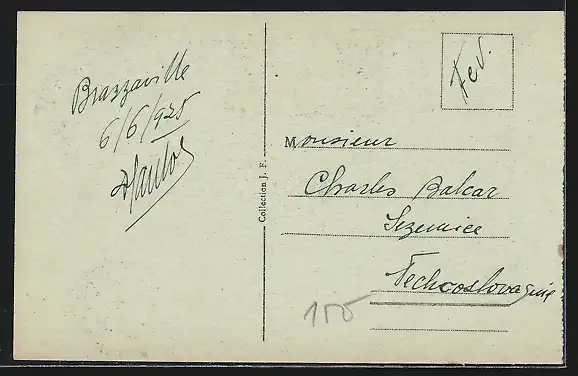 Brazzaville
6/6/925
Collection J. F.
Monsieur
Charles Balcar
Sezemice
Tchecoslovaquie
155